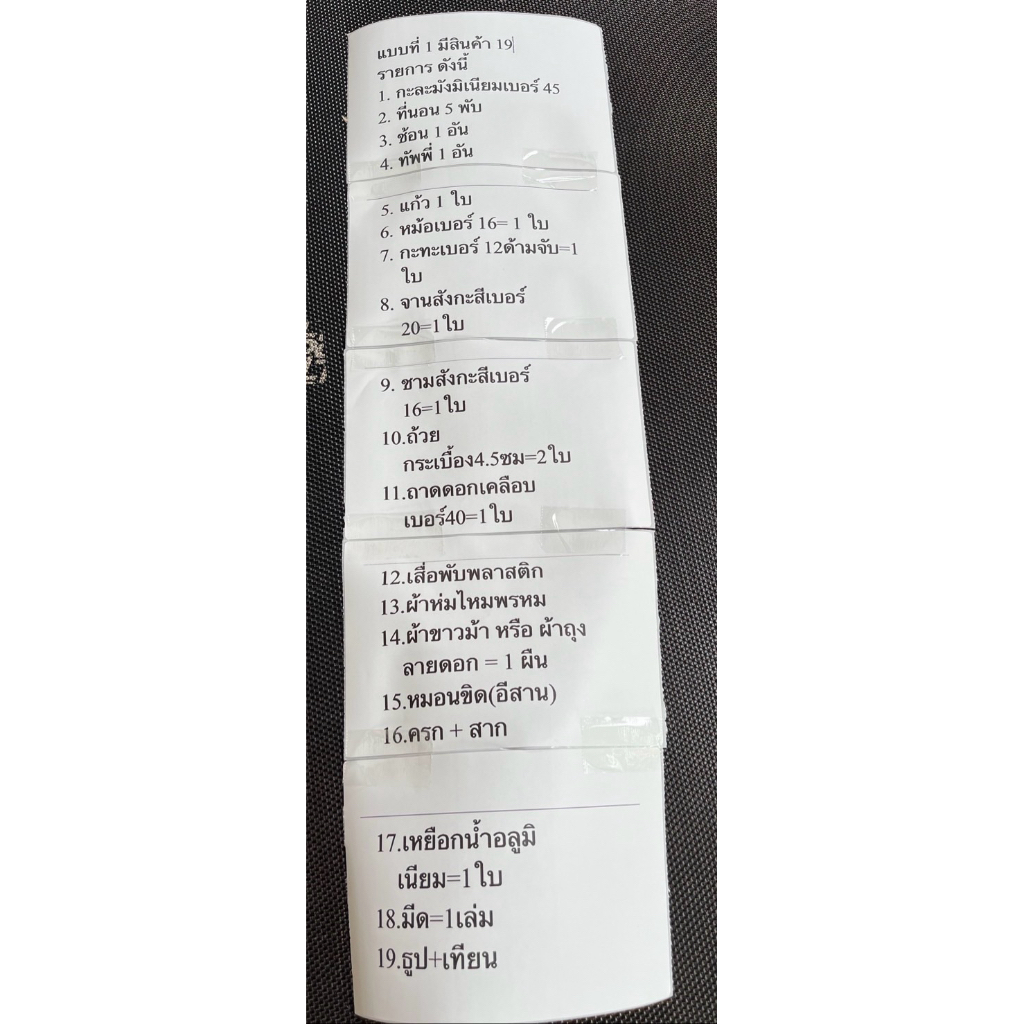 แบบที่ 1 มีสินค้า 19
รายการ ดังนี้
1. กะละมังมิเนียมเบอร์ 45
2. ที่นอน 5 พับ
3. ช้อน 1 อัน
4. ทัพพี่ 1 อัน
5. แก้ว 1 ใบ
6. หม้อเบอร์ 16= 1 ใบ
7. กะทะเบอร์ 12ด้ามจับ=1
ใบ
8. จานสังกะสีเบอร์
20=1ใบ
9. ชามสังกะสีเบอร์
16=1ใบ
10.ถ้วย
กระเบื้อง4.5ซม=2ใบ
11.ถาดดอกเคลือบ
เบอร์40=1ใบ
12.เสื่อพับพลาสติก
13.ผ้าห่มไหมพรหม
14.ผ้าขาวม้า หรือ ผ้าถุง
ลายดอก = 1 ผืน
15.หมอนขิด(อีสาน)
16.ครก + สาก
17.เหยือกน้ำอลูมิ
เนียม=1ใบ
18.มีด=1เล่ม
19.ธูป+เทียน